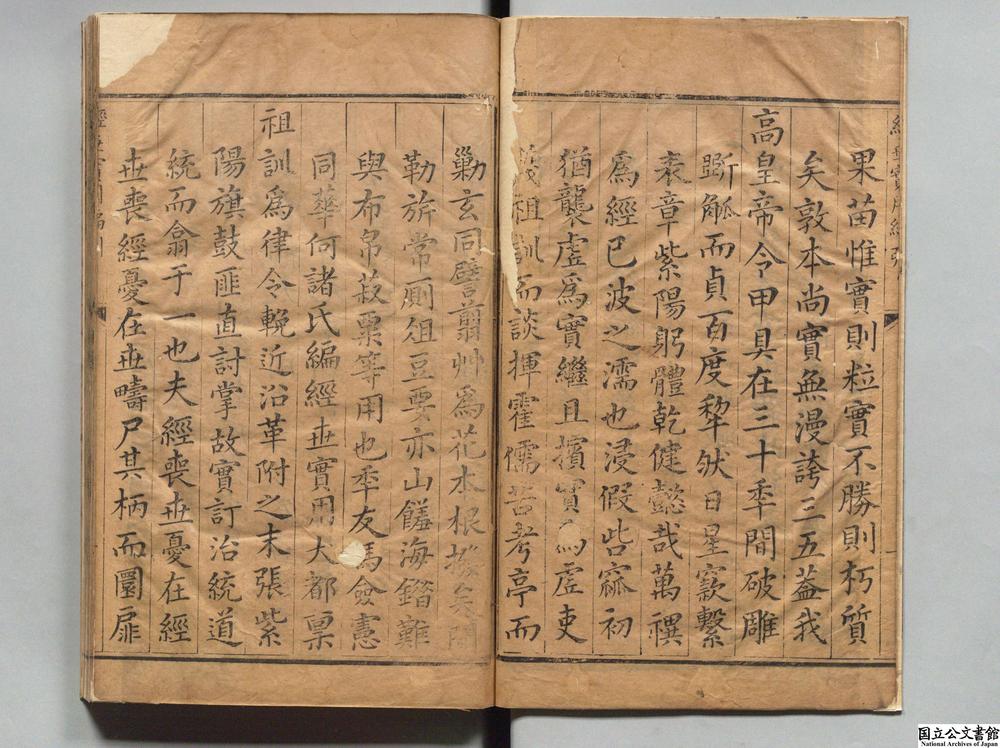 果苗惟實則粒實不勝則朽質
矣敦本尚實無漫誇三五葢我
高皇帝令甲具在三十秊間破雕
斲觚而貞百度犂然日星窾繫
表章紫陽躬體乾健懿哉萬禩
為經已波之濡也浸假呰窳初
猶襲虛為實繼且擯實為虛吏
祖訓而談揮霍儒苦考亭而
勦玄同譬翦艸為花本根撥矣
勒旂常廟俎豆要亦山饈海錯難
與布帛菽粟等用也秊友馬僉憲
同華何諸氏編經世實用大都稟
祖訓為律令輓近沿革附之末張紫
陽旗鼓匪直討掌故實訂治統道
統而翕于一也夫經喪世憂在經
世喪經憂在世疇尸其柄而圜扉
國立公文書館
National Archives of Japan